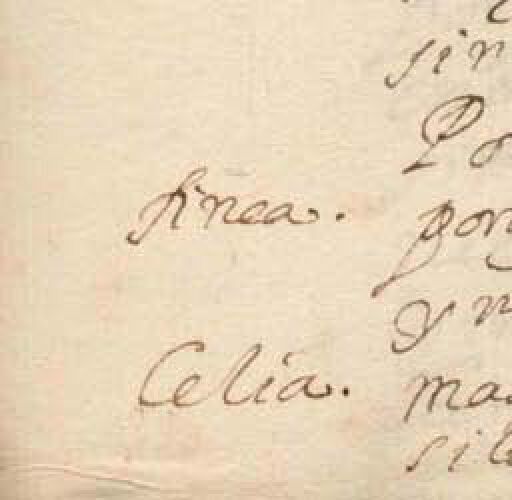 sin
Po
finea. porq
y n
Celia. mas
sile